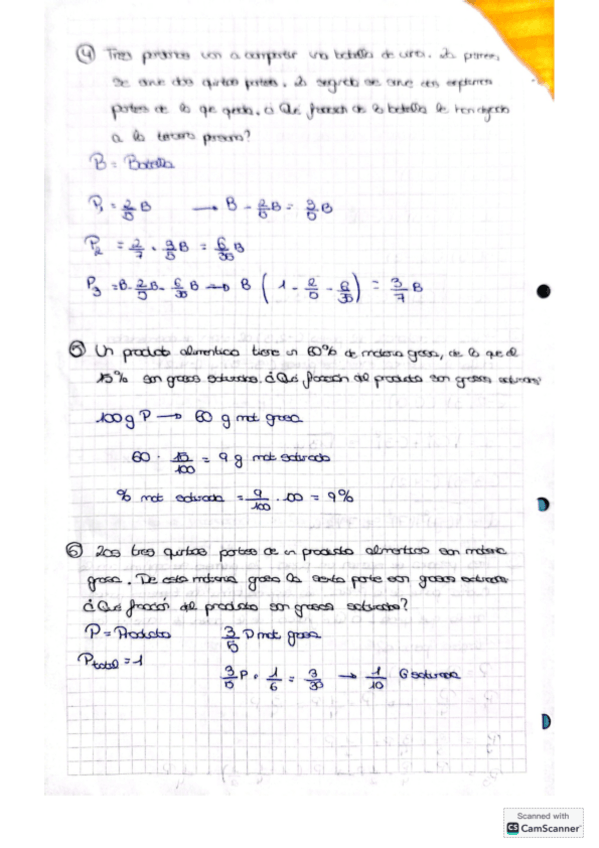 ④ Tres personas van a compartir una botella de vino. La primera
se sirve dos quintas partes, la segunda se sirve dos séptimas
partes de lo que queda, ¿Qué fracción de la botella le
a la tercera persona?
B = Botella
P₁ = 2/5 B → B - 2/5 B = 3/5 B
P₂ = 2/7 · 3/5 B = 6/35 B
P₃ = B - 2/5 B - 6/35 B → B (1 - 2/5 - 6/35) = 3/7 B
⑤ Un producto alimenticio tiene un 60% de materia grasa, de la que el
15% son grasas saturadas. ¿Qué fracción del producto son grasas saturadas?
100 g P → 60 g mat grasa
60 · 15/100 = 9 g mat saturada
% mat saturada = 9/100 · 100 = 9%
⑥ Las tres quintas partes de un producto alimenticio son materia
grasa. De esta materia grasa la sexta parte son grasas saturadas
¿Qué fracción del producto son grasas saturadas?
P = Producto 3/5 P mat grasa
P total = 1
3/5 P · 1/6 = 3/30 → 1/10 G saturada
Scanned with
CS CamScanner